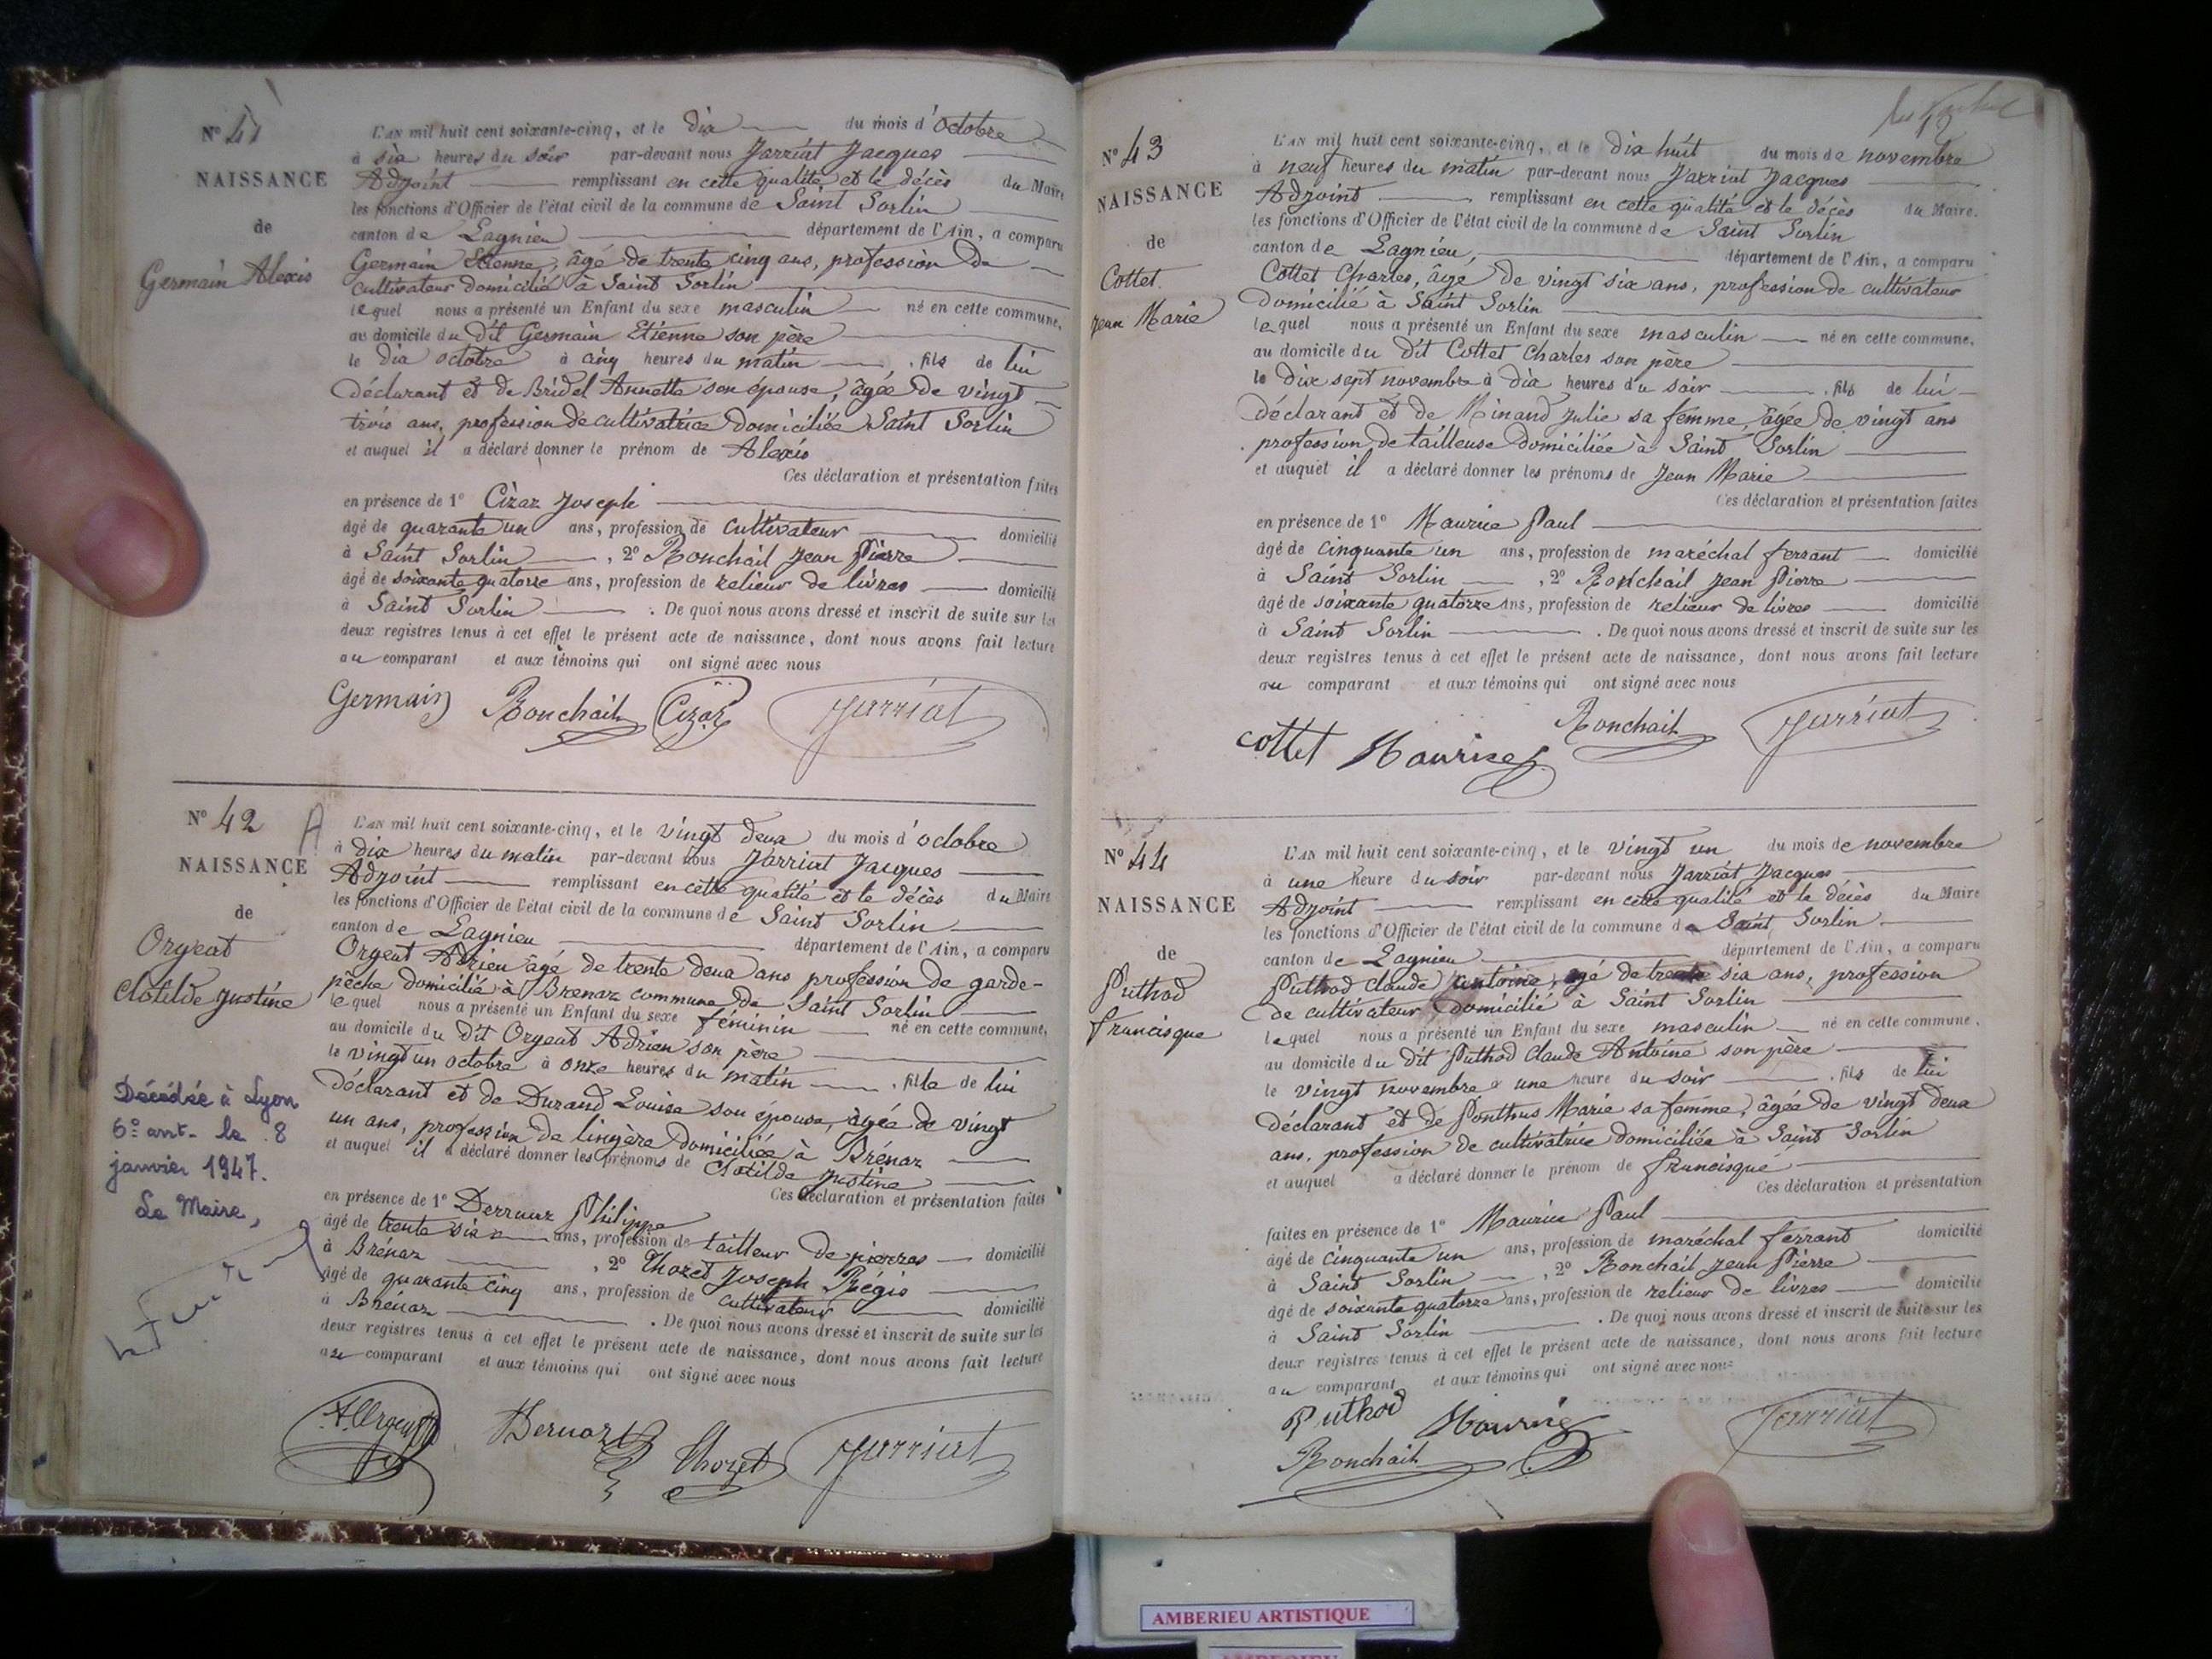 N° 41
NAISSANCE
de
Germain Alexis
L'AN mil huit cent soixante-cinq, et le dix du mois d'octobre
à six heures du soir par-devant nous Jarriat Jacques
Adjoint remplissant en cette qualité et le décès du Maire
les fonctions d'Officier de l'état civil de la commune de Saint Sorlin
canton de Lagnieu département de l'Ain, a comparu
Germain Etienne, âgé de trente cinq ans, profession de
cultivateur domicilié à Saint Sorlin
lequel nous a présenté un Enfant du sexe masculin né en cette commune,
au domicile du dit Germain Etienne son père
le dix octobre à cinq heures du matin, fils de lui
déclarant et de Bridel Annette son épouse, âgée de vingt
trois ans, profession de cultivatrice domiciliée Saint Sorlin
et auquel il a déclaré donner le prénom de Alexis
Ces déclaration et présentation faites
en présence de 1° Cizaz Joseph
âgé de quarante un ans, profession de cultivateur domicilié
à Saint Sorlin, 2° Ronchail Jean Pierre
âgé de soixante quatorze ans, profession de relieur de livres domicilié
à Saint Sorlin. De quoi nous avons dressé et inscrit de suite sur les
deux registres tenus à cet effet le présent acte de naissance, dont nous avons fait lecture
au comparant et aux témoins qui ont signé avec nous
Germain Ronchail Cizaz Jarriat
N° 42 A
NAISSANCE
de
Orgeat
Clotilde Justine
Décédée à Lyon
6e arrt. le 8
janvier 1947.
Le Maire,
L'AN mil huit cent soixante-cinq, et le vingt deux du mois d'octobre
à dix heures du matin par-devant nous Jarriat Jacques
Adjoint remplissant en cette qualité et le décès du Maire
les fonctions d'Officier de l'état civil de la commune de Saint Sorlin
canton de Lagnieu département de l'Ain, a comparu
Orgeat Adrien âgé de trente deux ans profession de garde-
pêche domicilié à Brénaz commune de Saint Sorlin
lequel nous a présenté un Enfant du sexe féminin né en cette commune,
au domicile du dit Orgeat Adrien son père
le vingt un octobre à onze heures du matin, fille de lui
déclarant et de Durand Louise son épouse, âgée de vingt
un ans, profession de lingère domiciliée à Brénaz
et auquel il a déclaré donner les prénoms de Clotilde Justine
Ces déclaration et présentation faites
en présence de 1° Philippe
âgé de trente six ans, profession de tailleur de pierres domicilié
à Brénaz, 2° Thozet Joseph Régis
âgé de quarante cinq ans, profession de cultivateur domicilié
à Brénaz. De quoi nous avons dressé et inscrit de suite sur les
deux registres tenus à cet effet le présent acte de naissance, dont nous avons fait lecture
au comparant et aux témoins qui ont signé avec nous
A. Orgeat Thozet Jarriat
N° 43
NAISSANCE
de
Cottet
Jean Marie
L'AN mil huit cent soixante-cinq, et le dix huit du mois de novembre
à neuf heures du matin par-devant nous Jarriat Jacques
Adjoint remplissant en cette qualité et le décès du Maire.
les fonctions d'Officier de l'état civil de la commune de Saint Sorlin
canton de Lagnieu, département de l'Ain, a comparu
Cottet Charles, âgé de vingt six ans, profession de cultivateur
domicilié à Saint Sorlin
lequel nous a présenté un Enfant du sexe masculin né en cette commune,
au domicile du dit Cottet Charles son père
le dix sept novembre à dix heures du soir, fils de lui
déclarant et de Minand Julie sa femme, âgée de vingt ans
profession de tailleuse domiciliée à Saint Sorlin
et auquel il a déclaré donner les prénoms de Jean Marie
Ces déclaration et présentation faites
en présence de 1° Maurice Paul
âgé de cinquante un ans, profession de maréchal ferrant domicilié
à Saint Sorlin, 2° Ronchail Jean Pierre
âgé de soixante quatorze ans, profession de relieur de livres domicilié
à Saint Sorlin. De quoi nous avons dressé et inscrit de suite sur les
deux registres tenus à cet effet le présent acte de naissance, dont nous avons fait lecture
au comparant et aux témoins qui ont signé avec nous
Cottet Maurice Ronchail Jarriat
N° 44
NAISSANCE
de
Puthod
francisque
L'AN mil huit cent soixante-cinq, et le vingt un du mois de novembre
à une heure du soir par-devant nous Jarriat Jacques
Adjoint remplissant en cette qualité et le décès du Maire
les fonctions d'Officier de l'état civil de la commune de Saint Sorlin
canton de Lagnieu département de l'Ain, a comparu
Puthod Claude Antoine, âgé de trente six ans, profession
de cultivateur domicilié à Saint Sorlin
lequel nous a présenté un Enfant du sexe masculin né en cette commune,
au domicile du dit Puthod Claude Antoine son père
le vingt novembre à une heure du soir, fils de lui
déclarant et de Ponthus Marie sa femme, âgée de vingt deux
ans, profession de cultivatrice domiciliée à Saint Sorlin
et auquel a déclaré donner le prénom de francisque
Ces déclaration et présentation
faites en présence de 1° Maurice Paul
âgé de cinquante un ans, profession de maréchal ferrant domicilié
à Saint Sorlin, 2° Ronchail Jean Pierre
âgé de soixante quatorze ans, profession de relieur de livres domicilié
à Saint Sorlin. De quoi nous avons dressé et inscrit de suite sur les
deux registres tenus à cet effet le présent acte de naissance, dont nous avons fait lecture
au comparant et aux témoins qui ont signé avec nous
Puthod Maurice Jarriat
Ronchail
AMBERIEU ARTISTIQUE